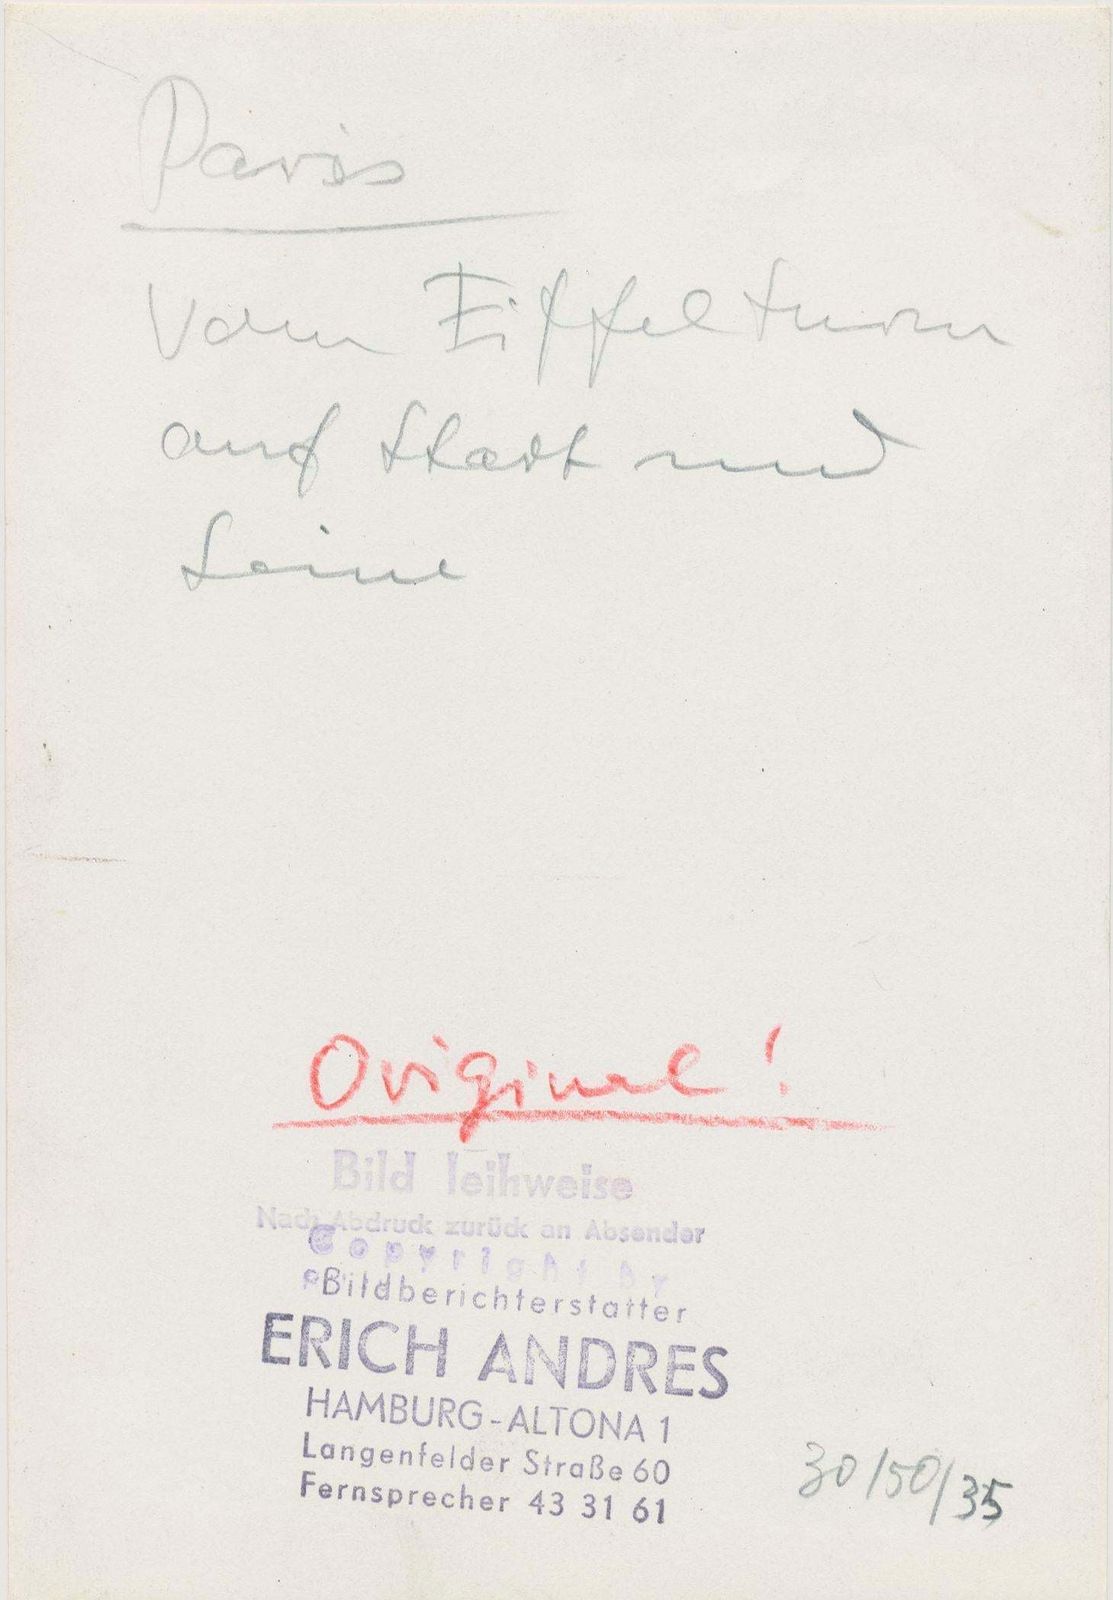 Paris
Vom Eiffelturm
auf Stadt und
Seine
Original!
Bild leihweise
Nach Abdruck zurück an Absender
Copyright by
Bildberichterstatter
ERICH ANDRES
HAMBURG-ALTONA 1
Langenfelder Straße 60
Fernsprecher 43 31 61
30/50/35